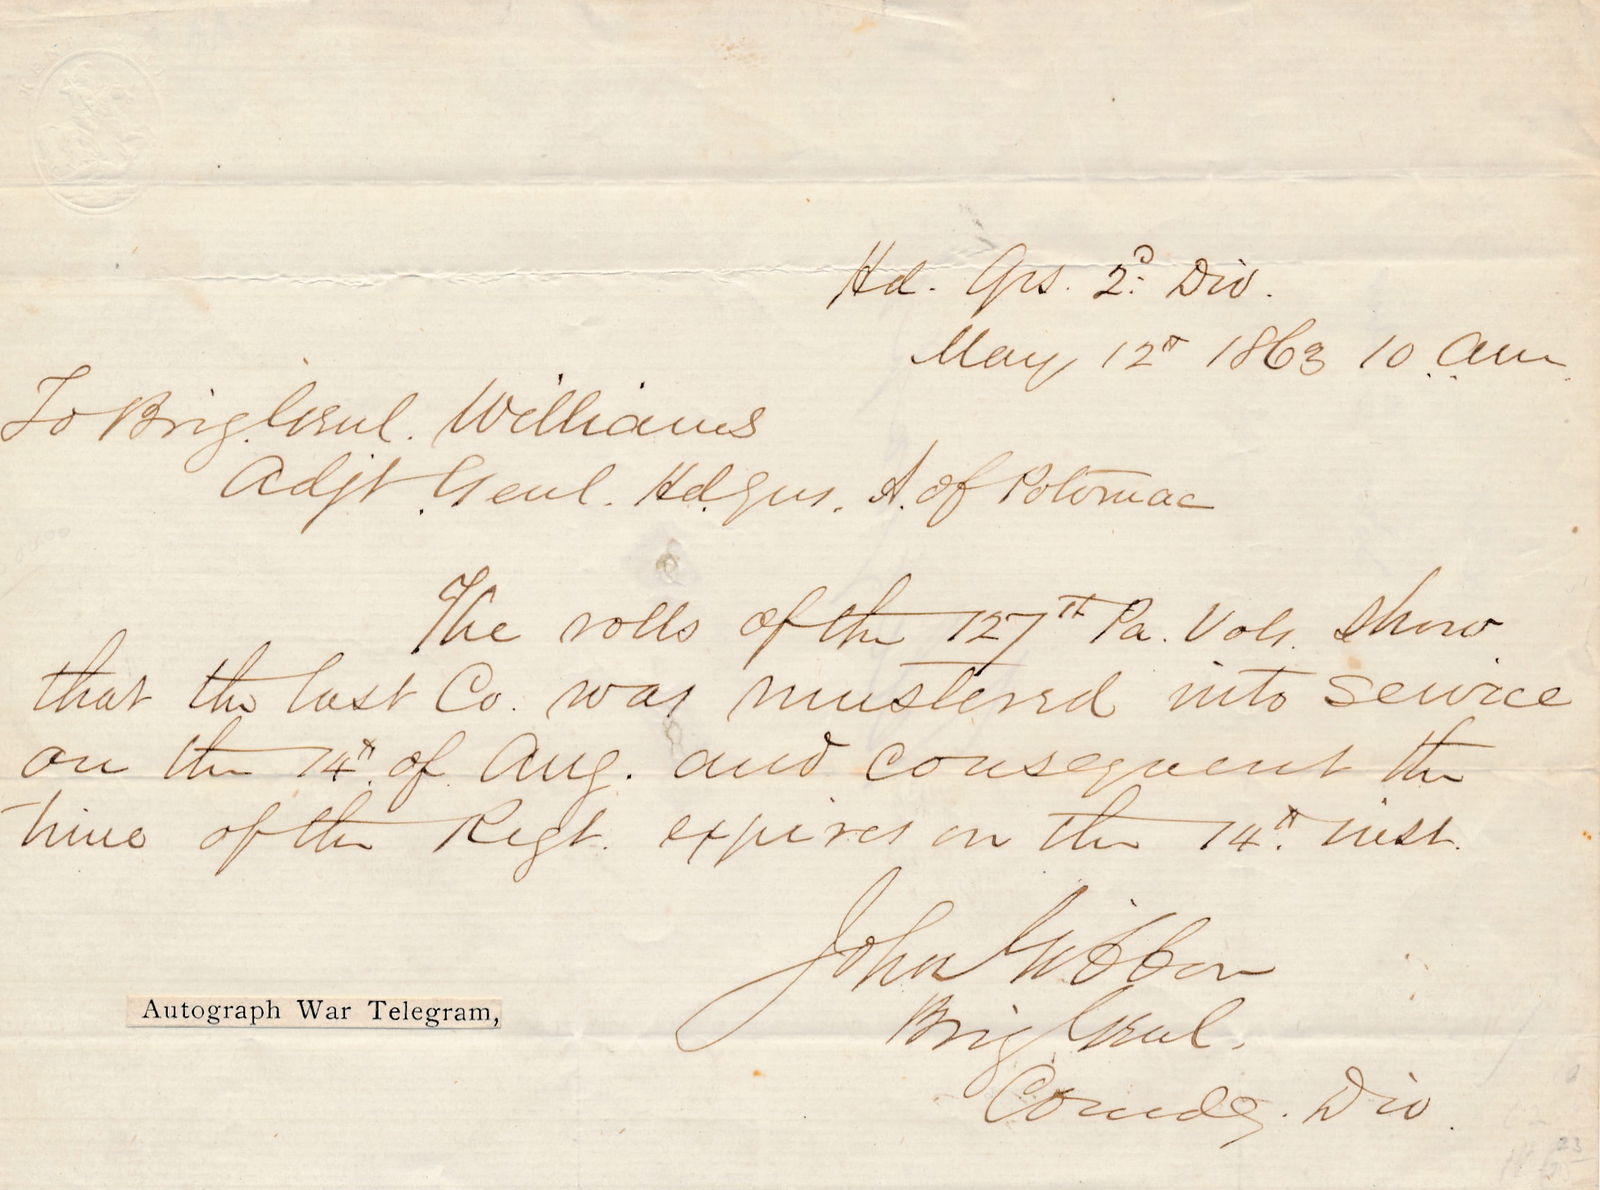 Hd. Qrs. 2d Div.
May 12th 1863 10 am.
To Brig. Genl. Williams
Adjt. Genl. Hd. Qrs. A. of Potomac
The rolls of the 127th Pa. Vols. show
that the last Co. was mustered into service
on the 14th of Aug. and consequent the
time of the Regt. expires on the 14th inst.
John Gibbon
Brig Genl.
Comdg. Div.
Autograph War Telegram,